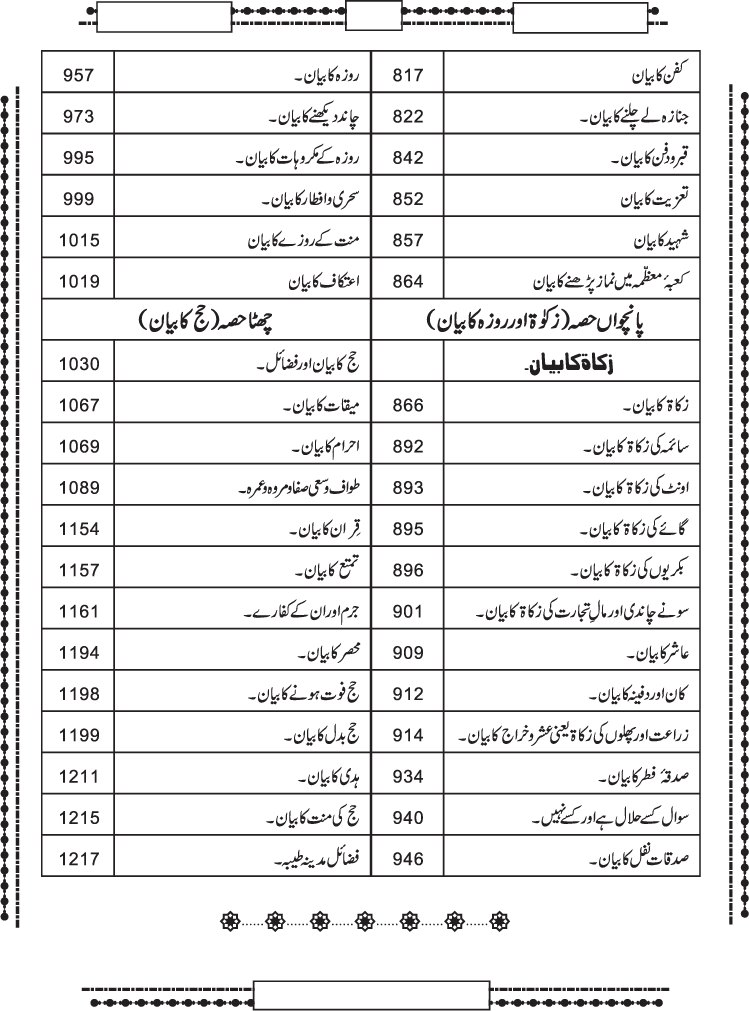 کفن کا بیان 817
جنازہ لے چلنے کا بیان۔ 822
قبر و دفن کا بیان۔ 842
تعزیت کا بیان 852
شہید کا بیان 857
کعبۂ معظّمہ میں نماز پڑھنے کا بیان 864
پانچواں حصہ (زکوٰۃ اور روزہ کا بیان)
زکاۃ کا بیان۔
زکاۃ کا بیان۔ 866
سائمہ کی زکاۃ کا بیان۔ 892
اونٹ کی زکاۃ کا بیان۔ 893
گائے کی زکاۃ کا بیان۔ 895
بکریوں کی زکاۃ کا بیان۔ 896
سونے چاندی اور مالِ تجارت کی زکاۃ کا بیان۔ 901
عاشر کا بیان۔ 909
کان اور دفینہ کا بیان۔ 912
زراعت اور پھلوں کی زکاۃ یعنی عشر و خراج کا بیان۔ 914
صدقۂ فطر کا بیان۔ 934
سوال کسے حلال ہے اور کسے نہیں۔ 940
صدقات نفل کا بیان۔ 946
روزہ کا بیان۔ 957
چاند دیکھنے کا بیان۔ 973
روزہ کے مکروہات کا بیان۔ 995
سحری و افطار کا بیان۔ 999
منت کے روزے کا بیان 1015
اعتکاف کا بیان 1019
چھٹا حصہ (حج کا بیان)
حج کا بیان اور فضائل۔ 1030
میقات کا بیان۔ 1067
احرام کا بیان۔ 1069
طواف وسعی صفا و مروہ و عمرہ۔ 1089
قِران کا بیان۔ 1154
تمتع کا بیان۔ 1157
جرم اور ان کے کفارے۔ 1161
محصر کا بیان۔ 1194
حج فوت ہونے کا بیان۔ 1198
حج بدل کا بیان۔ 1199
ہدی کا بیان۔ 1211
حج کی منت کا بیان۔ 1215
فضائل مدینہ طیبہ۔ 1217